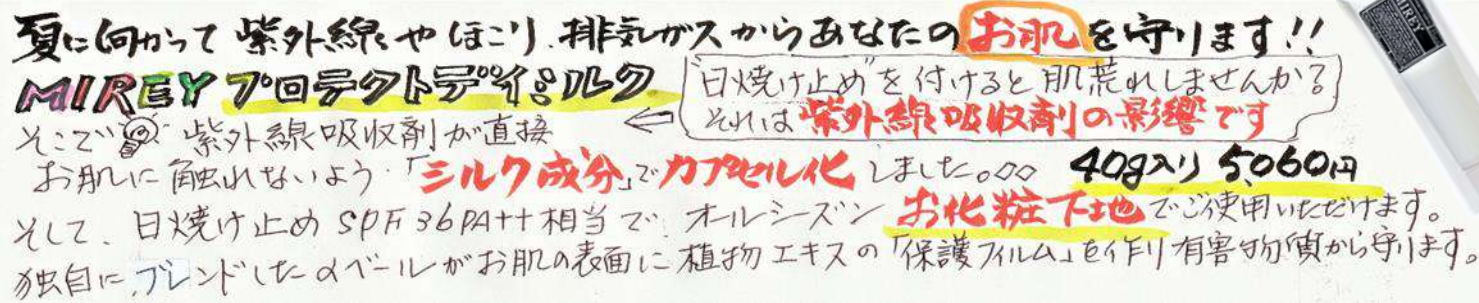 夏に向かって紫外線やほこり、排気ガスからあなたのお肌を守ります!!
MIREY プロテクトデイミルク
"日焼け止め"を付けると肌荒れしませんか?
それは紫外線吸収剤の影響です
そこで 紫外線吸収剤が直接
お肌に触れないよう「シルク成分」でカプセル化しました。 40g入り 5,060円
そして、日焼け止めSPF36PA++相当で、オールシーズンお化粧下地でご使用いただけます。
独自にブレンドしたαベールがお肌の表面に植物エキスの「保護フィルム」を作り有害物質から守ります。